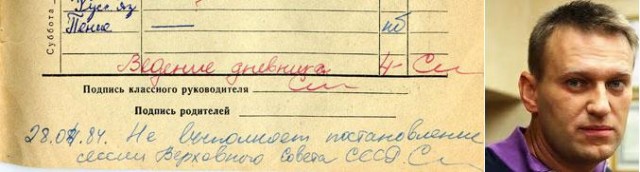 Суббота
Русс яз
Пение — нб
Ведение дневника 4 - См
Подпись классного руководителя См
Подпись родителей
28.04.84. Не выполняет постановление
сессии Верховного Совета СССР. См